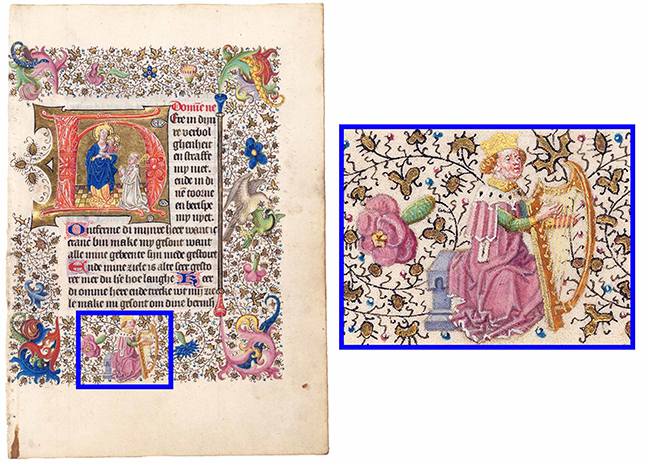 Domīe ne
Ere in dijn
re verbol
ghenheit
en straffe
my niet.
ende in di
nē toorne
en berispe
my nyet.
Ontferme di mijnre heer want ic
cranc bin make my gesont want
alle mine gebeente sijn mede gestoert
Ende mine ziele is alte seer gesto
ret mer du he hoe langhe Keer
di omme here ende trecke wt mijn zie
le make mi gesont om dine bermh